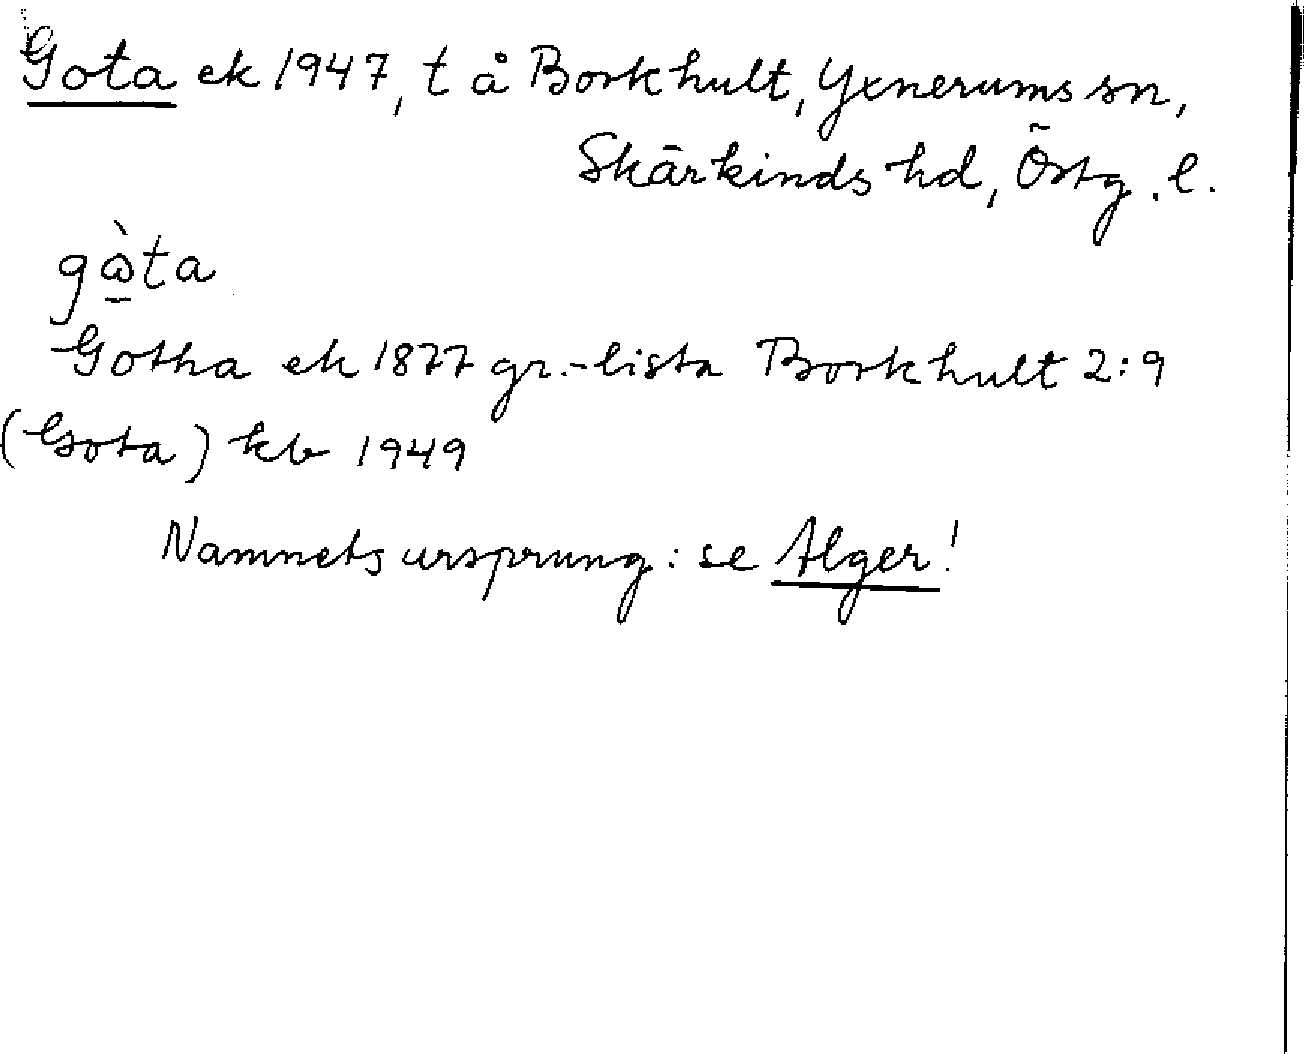 Gota ek 1947, t å Borkhult, Yxnerums sn,
Skärkinds hd, Östg. l.
gὼ̲ta
Gotha ek 1877 gr.-lista Borkhult 2:9
(Gota) kb 1949
Namnets ursprung: se Alger!